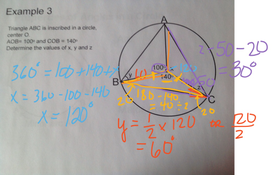 Example 3
Triangle ABC is inscribed in a circle,
center O.
AOB= 100º and COB = 140º
Determine the values of x, y and z
A
z=50-20
=30°
360°=100+140+x
x=360-100-140
x=120°
100º
140º
B
C
y
20
20
180-140
=40÷2
y=1/2 x 120 or 120/2
=60°